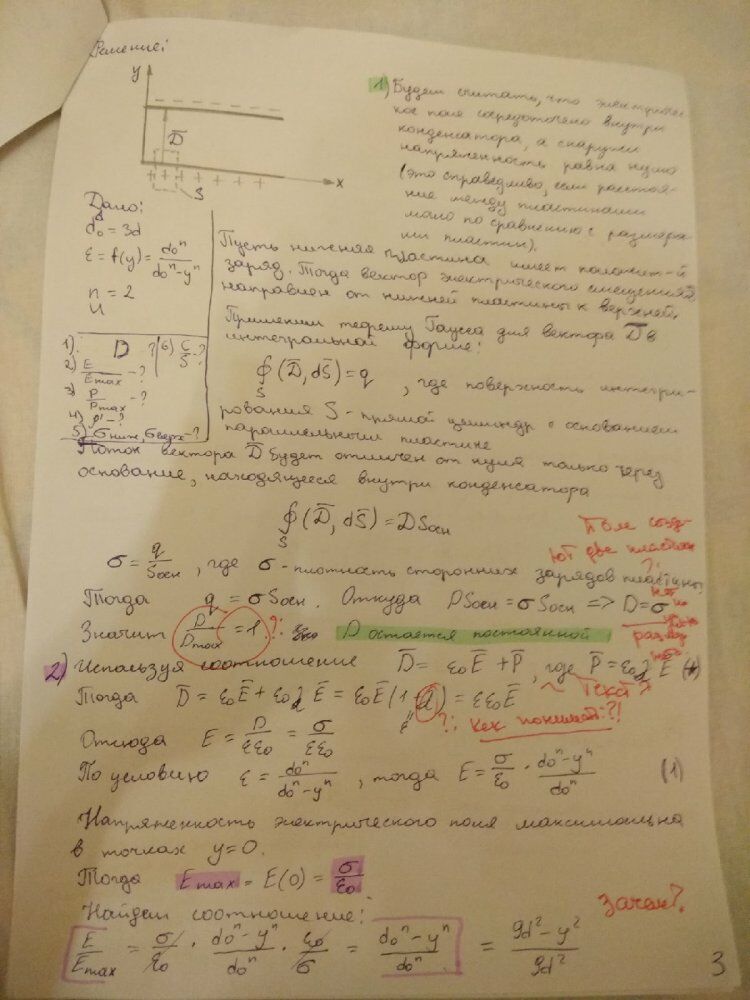 Решение:
y
D̄
S
x
1) Будем считать, что электричес-
кое поле сосредоточено внутри
конденсатора, а снаружи
напряженность равна нулю
(это справедливо, если расстоя-
ние между пластинами
мало по сравнению с размера-
ми пластин).
Дано:
d₀ = 3d
ε = f(y) = d₀ⁿ/(d₀ⁿ-yⁿ)
n = 2
U
1) D - ? 6) C/S - ?
2) E/Emax - ?
3) P/Pmax - ?
4) ρ' - ?
5) σниж, σверх - ?
Пусть нижняя пластина имеет положит-й
заряд. Тогда вектор электрического смещения
направлен от нижней пластины к верхней.
Применим теорему Гаусса для вектора D̄ в
интегральной форме:
∮S (D̄, dS̄) = q , где поверхность интегри-
рования S - прямой цилиндр с основанием
параллельным пластине
Поток вектора D̄ будет отличен от нуля только через
основание, находящееся внутри конденсатора
∮S (D̄, dS̄) = DSосн
Поле созд-
ют две пластины
?!
σ = q/Sосн , где σ - плотность сторонних зарядов пластины
Тогда q = σSосн. Откуда DSосн = σSосн => D = σ
Значит D/Dmax = 1 ?! D остается постоянной
2) Используя соотношение D̄ = ε₀Ē + P̄, где P̄ = ε₀χĒ (*)
Тогда D̄ = ε₀Ē + ε₀χĒ = ε₀Ē(1+χ) = εε₀Ē
ε
~ Текст?
?! Как понимать?!
Отсюда E = D/εε₀ = σ/εε₀
По условию ε = d₀ⁿ/(d₀ⁿ-yⁿ) , тогда E = σ/ε₀ · (d₀ⁿ-yⁿ)/d₀ⁿ (1)
Напряженность электрического поля максимальна
в точках y=0.
Тогда Emax = E(0) = σ/ε₀
Найдем соотношение:
зачем?
E/Emax = σ/ε₀ · (d₀ⁿ-yⁿ)/d₀ⁿ · ε₀/σ = (d₀ⁿ-yⁿ)/d₀ⁿ = (9d²-y²)/9d²
3